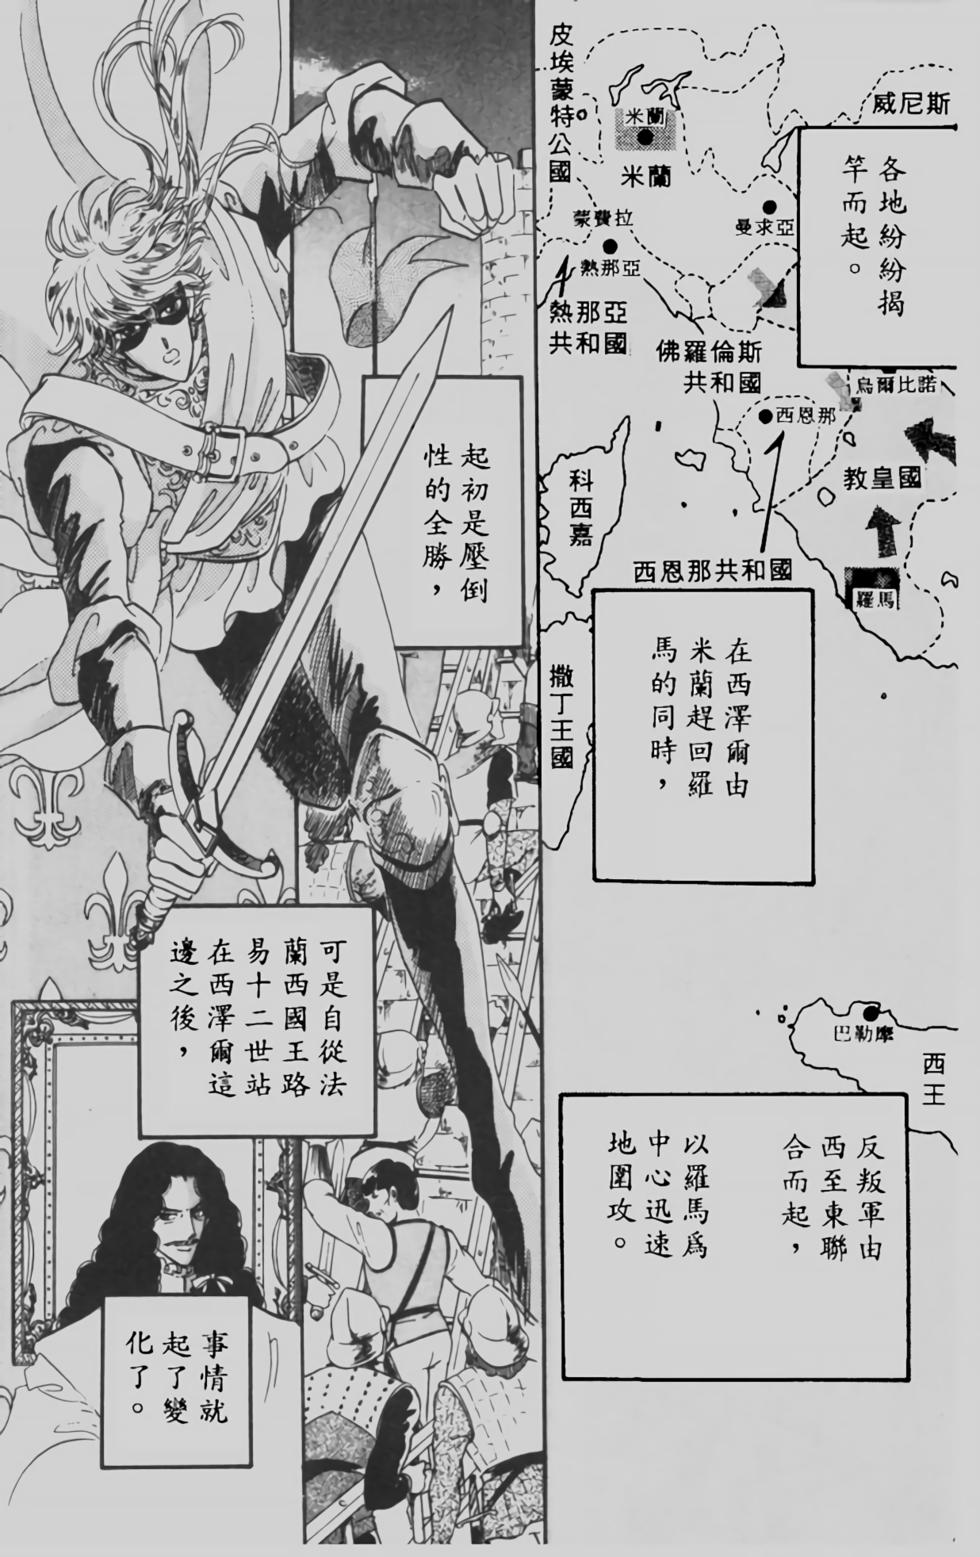 各地紛紛揭
竿而起。
在西澤爾由
米蘭趕回羅
馬的同時，
反叛軍由
西至東聯
合而起，
以羅馬爲
中心迅速
地圍攻。
起初是壓倒
性的全勝，
可是自從法
蘭西國王路
易十二世站
在西澤爾這
邊之後，
事情就
起了變
化了。
威尼斯
皮埃蒙特公國
米蘭
米蘭
蒙費拉
熱那亞
曼求亞
熱那亞
共和國
佛羅倫斯
共和國
烏爾比諾
西恩那
教皇國
科西嘉
西恩那共和國
羅馬
撒丁王國
巴勒摩
西
王